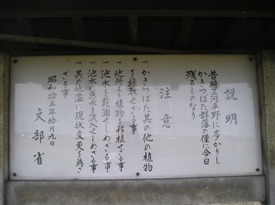 説明
昔時三河平野に多かりし
かきつばた群落の僅に今日
残るものなり
注意
一、かきつばた其の他の植物
を採取せざる事
一、他所より植物を移植せざる事
一、池水を乾涸せしめざる事
一、池水に悪水を流入せしめざる事
一、其の他濫に現状変更を為さ
ざる事
昭和十五年拾月九日
文部省